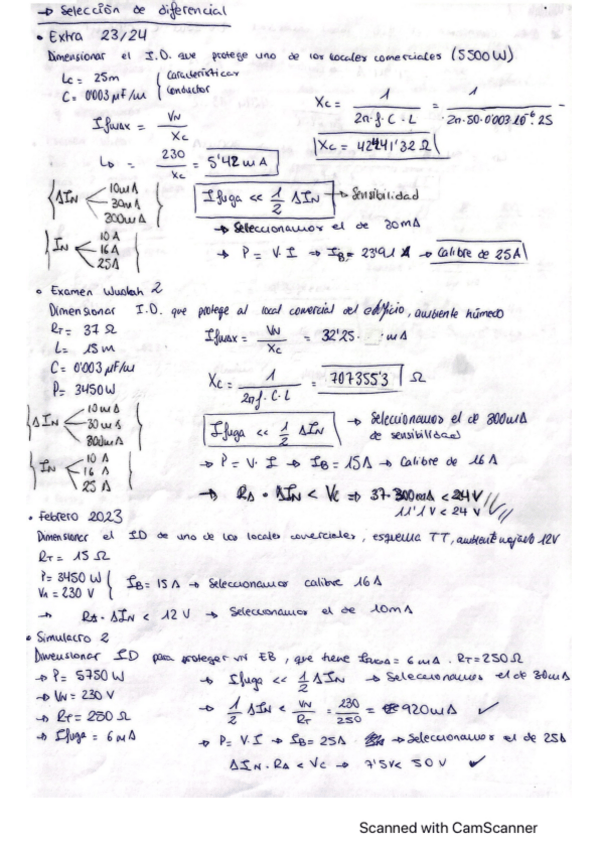 → Selección de diferencial
• Extra 23/24
Dimensionar el I.D. que protege uno de los locales comerciales (5500W)
Lc = 25m
C = 0'003 μF/m
Características
conductor
Xc = 1 / 2π·f·C·L = 1 / 2π·50·0'003·10⁻⁶·25
Ifmax = VN / Xc
Xc = 42441'32 Ω
LD = 230 / Xc = 5'42 mA
ΔIN 10mA 30mA 300mA
Ifuga << 1/2 ΔIN → Sensibilidad
→ Seleccionamos el de 30mA
IN 10A 16A 25A
→ P = V·I ⇒ IB = 23'91 A → Calibre de 25A
• Examen Wuolah 2
Dimensionar I.D. que protege al local comercial del edificio, ambiente húmedo
RT = 37 Ω
L = 15m
C = 0'003 μF/m
P = 3450W
Ifmax = VN / Xc = 32'25 mA
Xc = 1 / 2πf·C·L = 70735'53 Ω
ΔIN 10mA 30mA 300mA
Ifuga << 1/2 ΔIN → Seleccionamos el de 300mA
de sensibilidad
IN 10 A 16 A 25 A
→ P = V·I → IB = 15A → Calibre de 16A
→ RA · ΔIN < Vc ⇒ 37·300mA < 24V
11'1V < 24V
• Febrero 2023
Dimensionar el ID de uno de los locales comerciales, esquema TT, ambiente mojado 12V
RT = 15 Ω
P = 3450 W
VN = 230 V
IB = 15A → Seleccionamos calibre 16A
→ RA·ΔIN < 12 V → Seleccionamos el de 10mA
• Simulacro 2
Dimensionar ID para proteger EB, que tiene = 6mA. RT = 250Ω
→ P = 5750W
→ Ifuga << 1/2 ΔIN → Seleccionamos el de 30mA
→ VN = 230V
→ RT = 250 Ω
→ 1/2 ΔIN < VN / RT = 230 / 250 = 920mA ✓
→ Ifuga = 6mA
→ P = V·I → IB = 25A → Seleccionamos el de 25A
ΔIN·RA < Vc → 7'5V < 50V ✓
Scanned with CamScanner